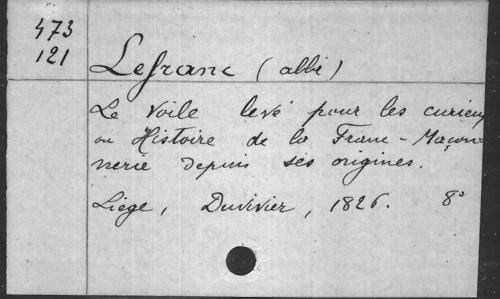 473
121
Lefranc (abbé)
Le Voile levé pour les curieux
ou Histoire de la Franc-Maçon-
nerie depuis ses origines.
Liége, Duvivier, 1826. 8°